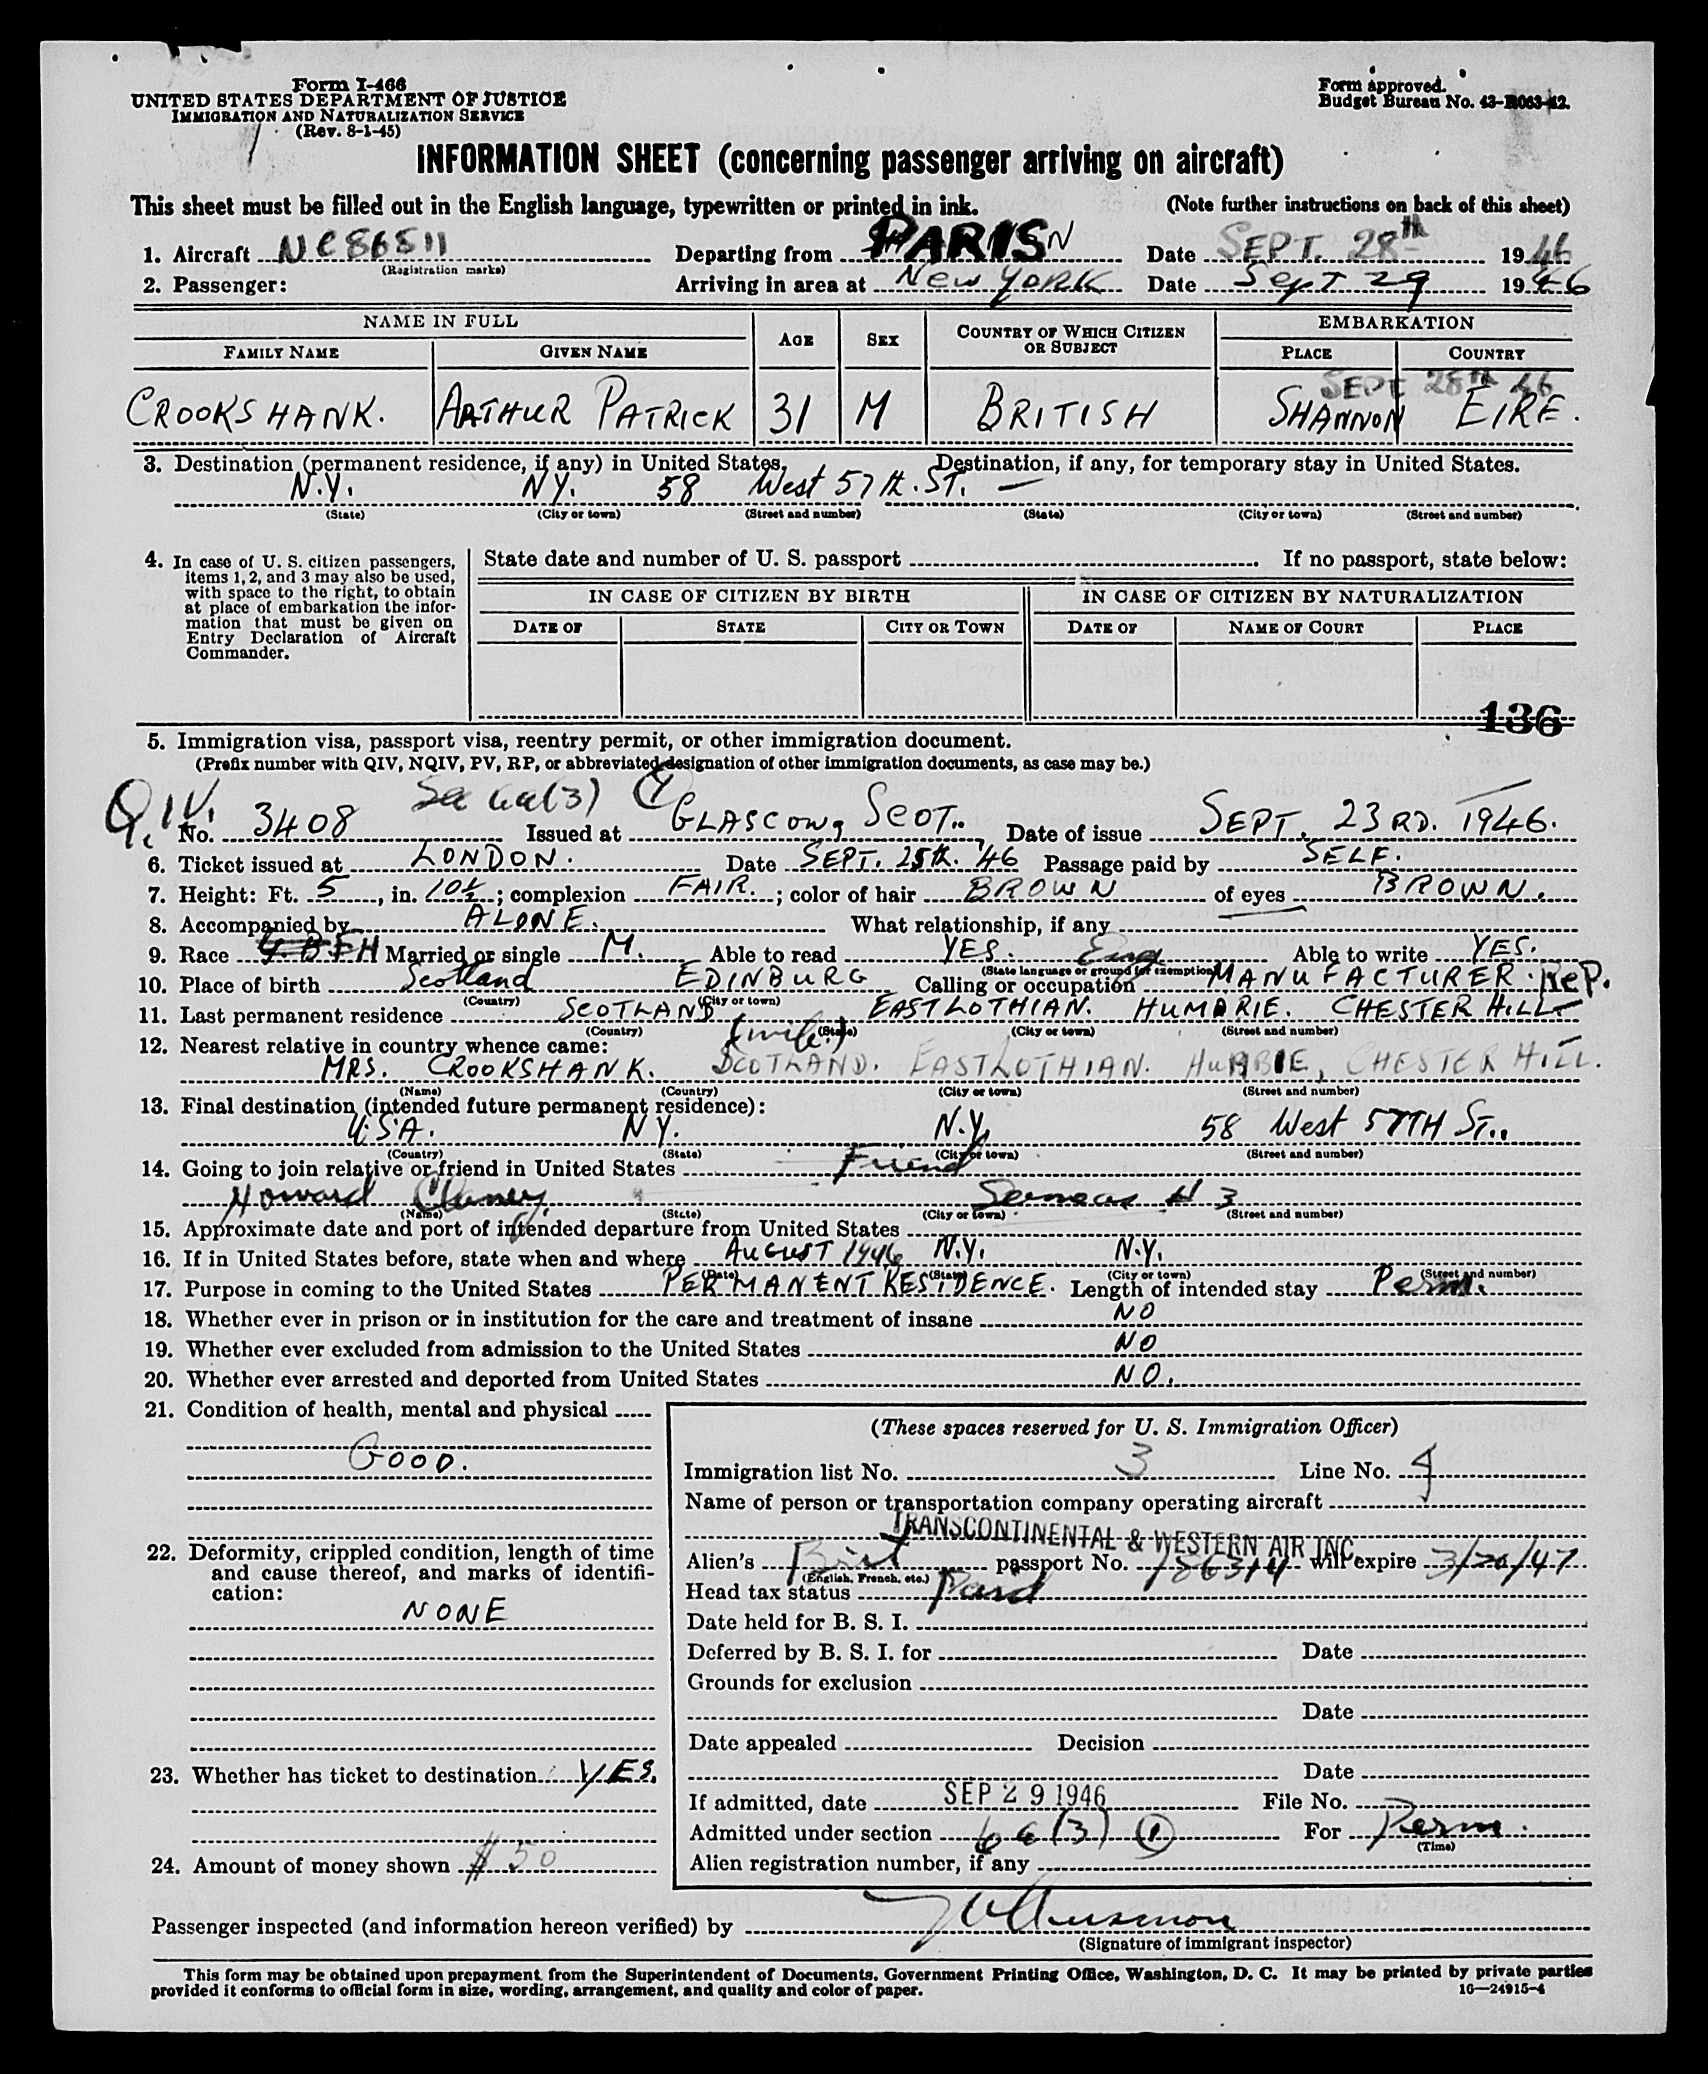 Form I-466
UNITED STATES DEPARTMENT OF JUSTICE
IMMIGRATION AND NATURALIZATION SERVICE
(Rev. 8-1-45)
Form approved.
Budget Bureau No. 43-R063-42.
INFORMATION SHEET (concerning passenger arriving on aircraft)
This sheet must be filled out in the English language, typewritten or printed in ink. (Note further instructions on back of this sheet)
1. Aircraft NC86511 Departing from PARIS Date SEPT. 28th 1946
(Registration marks)
2. Passenger: Arriving in area at New York Date Sept 29 1946
NAME IN FULL AGE SEX COUNTRY OF WHICH CITIZEN OR SUBJECT EMBARKATION
FAMILY NAME GIVEN NAME PLACE COUNTRY
SEPT 28th 46
CROOKSHANK. ARTHUR PATRICK 31 M BRITISH SHANNON EIRE.
3. Destination (permanent residence, if any) in United States. Destination, if any, for temporary stay in United States.
N.Y. NY. 58 West 57th. ST. —
(State) (City or town) (Street and number) (State) (City or town) (Street and number)
4. In case of U. S. citizen passengers, items 1, 2, and 3 may also be used, with space to the right, to obtain at place of embarkation the information that must be given on Entry Declaration of Aircraft Commander.
State date and number of U. S. passport If no passport, state below:
IN CASE OF CITIZEN BY BIRTH IN CASE OF CITIZEN BY NATURALIZATION
DATE OF STATE CITY OR TOWN DATE OF NAME OF COURT PLACE
136
5. Immigration visa, passport visa, reentry permit, or other immigration document.
(Prefix number with QIV, NQIV, PV, RP, or abbreviated designation of other immigration documents, as case may be.)
Q.I.V. Sec 6a(3) (1)
No. 3408 Issued at GLASCOW, SCOT.. Date of issue SEPT. 23RD. 1946.
6. Ticket issued at LONDON. Date SEPT. 25th. '46 Passage paid by SELF.
7. Height: Ft. 5, in. 10½; complexion FAIR.; color of hair BROWN of eyes BROWN.
8. Accompanied by ALONE. What relationship, if any
9. Race Married or single M. Able to read YES. Eng Able to write YES.
(State language or ground for exemption)
10. Place of birth Scotland EDINBURG Calling or occupation MANUFACTURER. REP.
(Country) (City or town)
11. Last permanent residence SCOTLAND EASTLOTHIAN. HUMBIE. CHESTER HILL
(Country) (State) (City or town) (Street and number)
12. Nearest relative in country whence came: (wife)
MRS. CROOKSHANK. SCOTLAND. EASTLOTHIAN. HUMBIE, CHESTER HILL.
(Name) (Country) (City or town) (Street and number)
13. Final destination (intended future permanent residence):
USA. NY. N.Y. 58 West 57TH ST..
(Country) (State) (City or town) (Street and number)
14. Going to join relative or friend in United States Friend
Howard Same as # 3
(Name) (State) (City or town) (Street and number)
15. Approximate date and port of intended departure from United States
16. If in United States before, state when and where AUGUST 1946 N.Y. N.Y.
(Date) (State) (City or town) (Street and number)
17. Purpose in coming to the United States PERMANENT RESIDENCE. Length of intended stay Perm.
18. Whether ever in prison or in institution for the care and treatment of insane NO
19. Whether ever excluded from admission to the United States NO
20. Whether ever arrested and deported from United States NO.
21. Condition of health, mental and physical
GOOD.
22. Deformity, crippled condition, length of time and cause thereof, and marks of identification:
NONE
23. Whether has ticket to destination YES.
24. Amount of money shown $50
(These spaces reserved for U. S. Immigration Officer)
Immigration list No. 3 Line No. 9
Name of person or transportation company operating aircraft
TRANSCONTINENTAL & WESTERN AIR INC
Alien's Brit passport No. 186314 will expire 3/20/47
(English, French, etc.)
Head tax status Paid
Date held for B. S. I.
Deferred by B. S. I. for Date
Grounds for exclusion
Date
Date appealed Decision
Date
If admitted, date SEP 29 1946 File No.
Admitted under section 6a(3) (1) For Perm.
(Time)
Alien registration number, if any
Passenger inspected (and information hereon verified) by
(Signature of immigrant inspector)
This form may be obtained upon prepayment from the Superintendent of Documents, Government Printing Office, Washington, D. C. It may be printed by private parties
provided it conforms to official form in size, wording, arrangement, and quality and color of paper. 16—24915-4